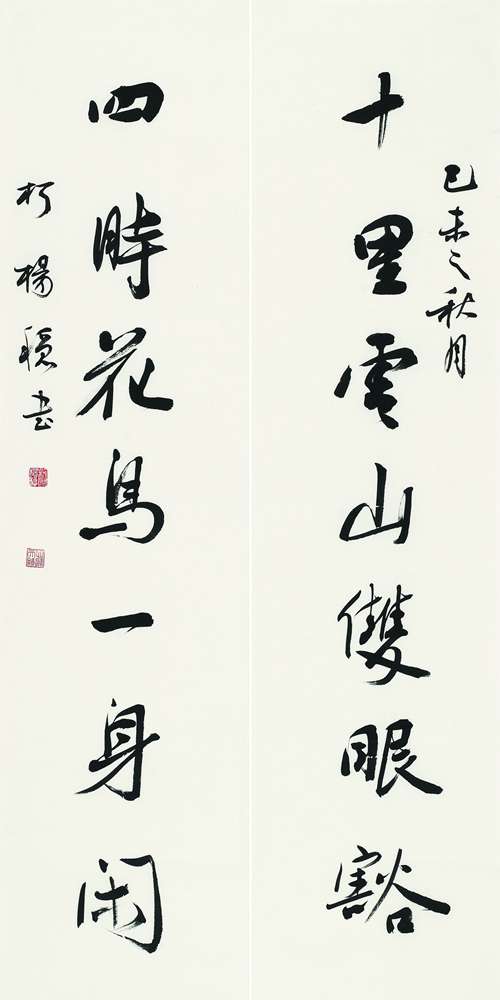 己未之秋月
十里雲山雙眼豁
四時花鳥一身閑
楊穩書